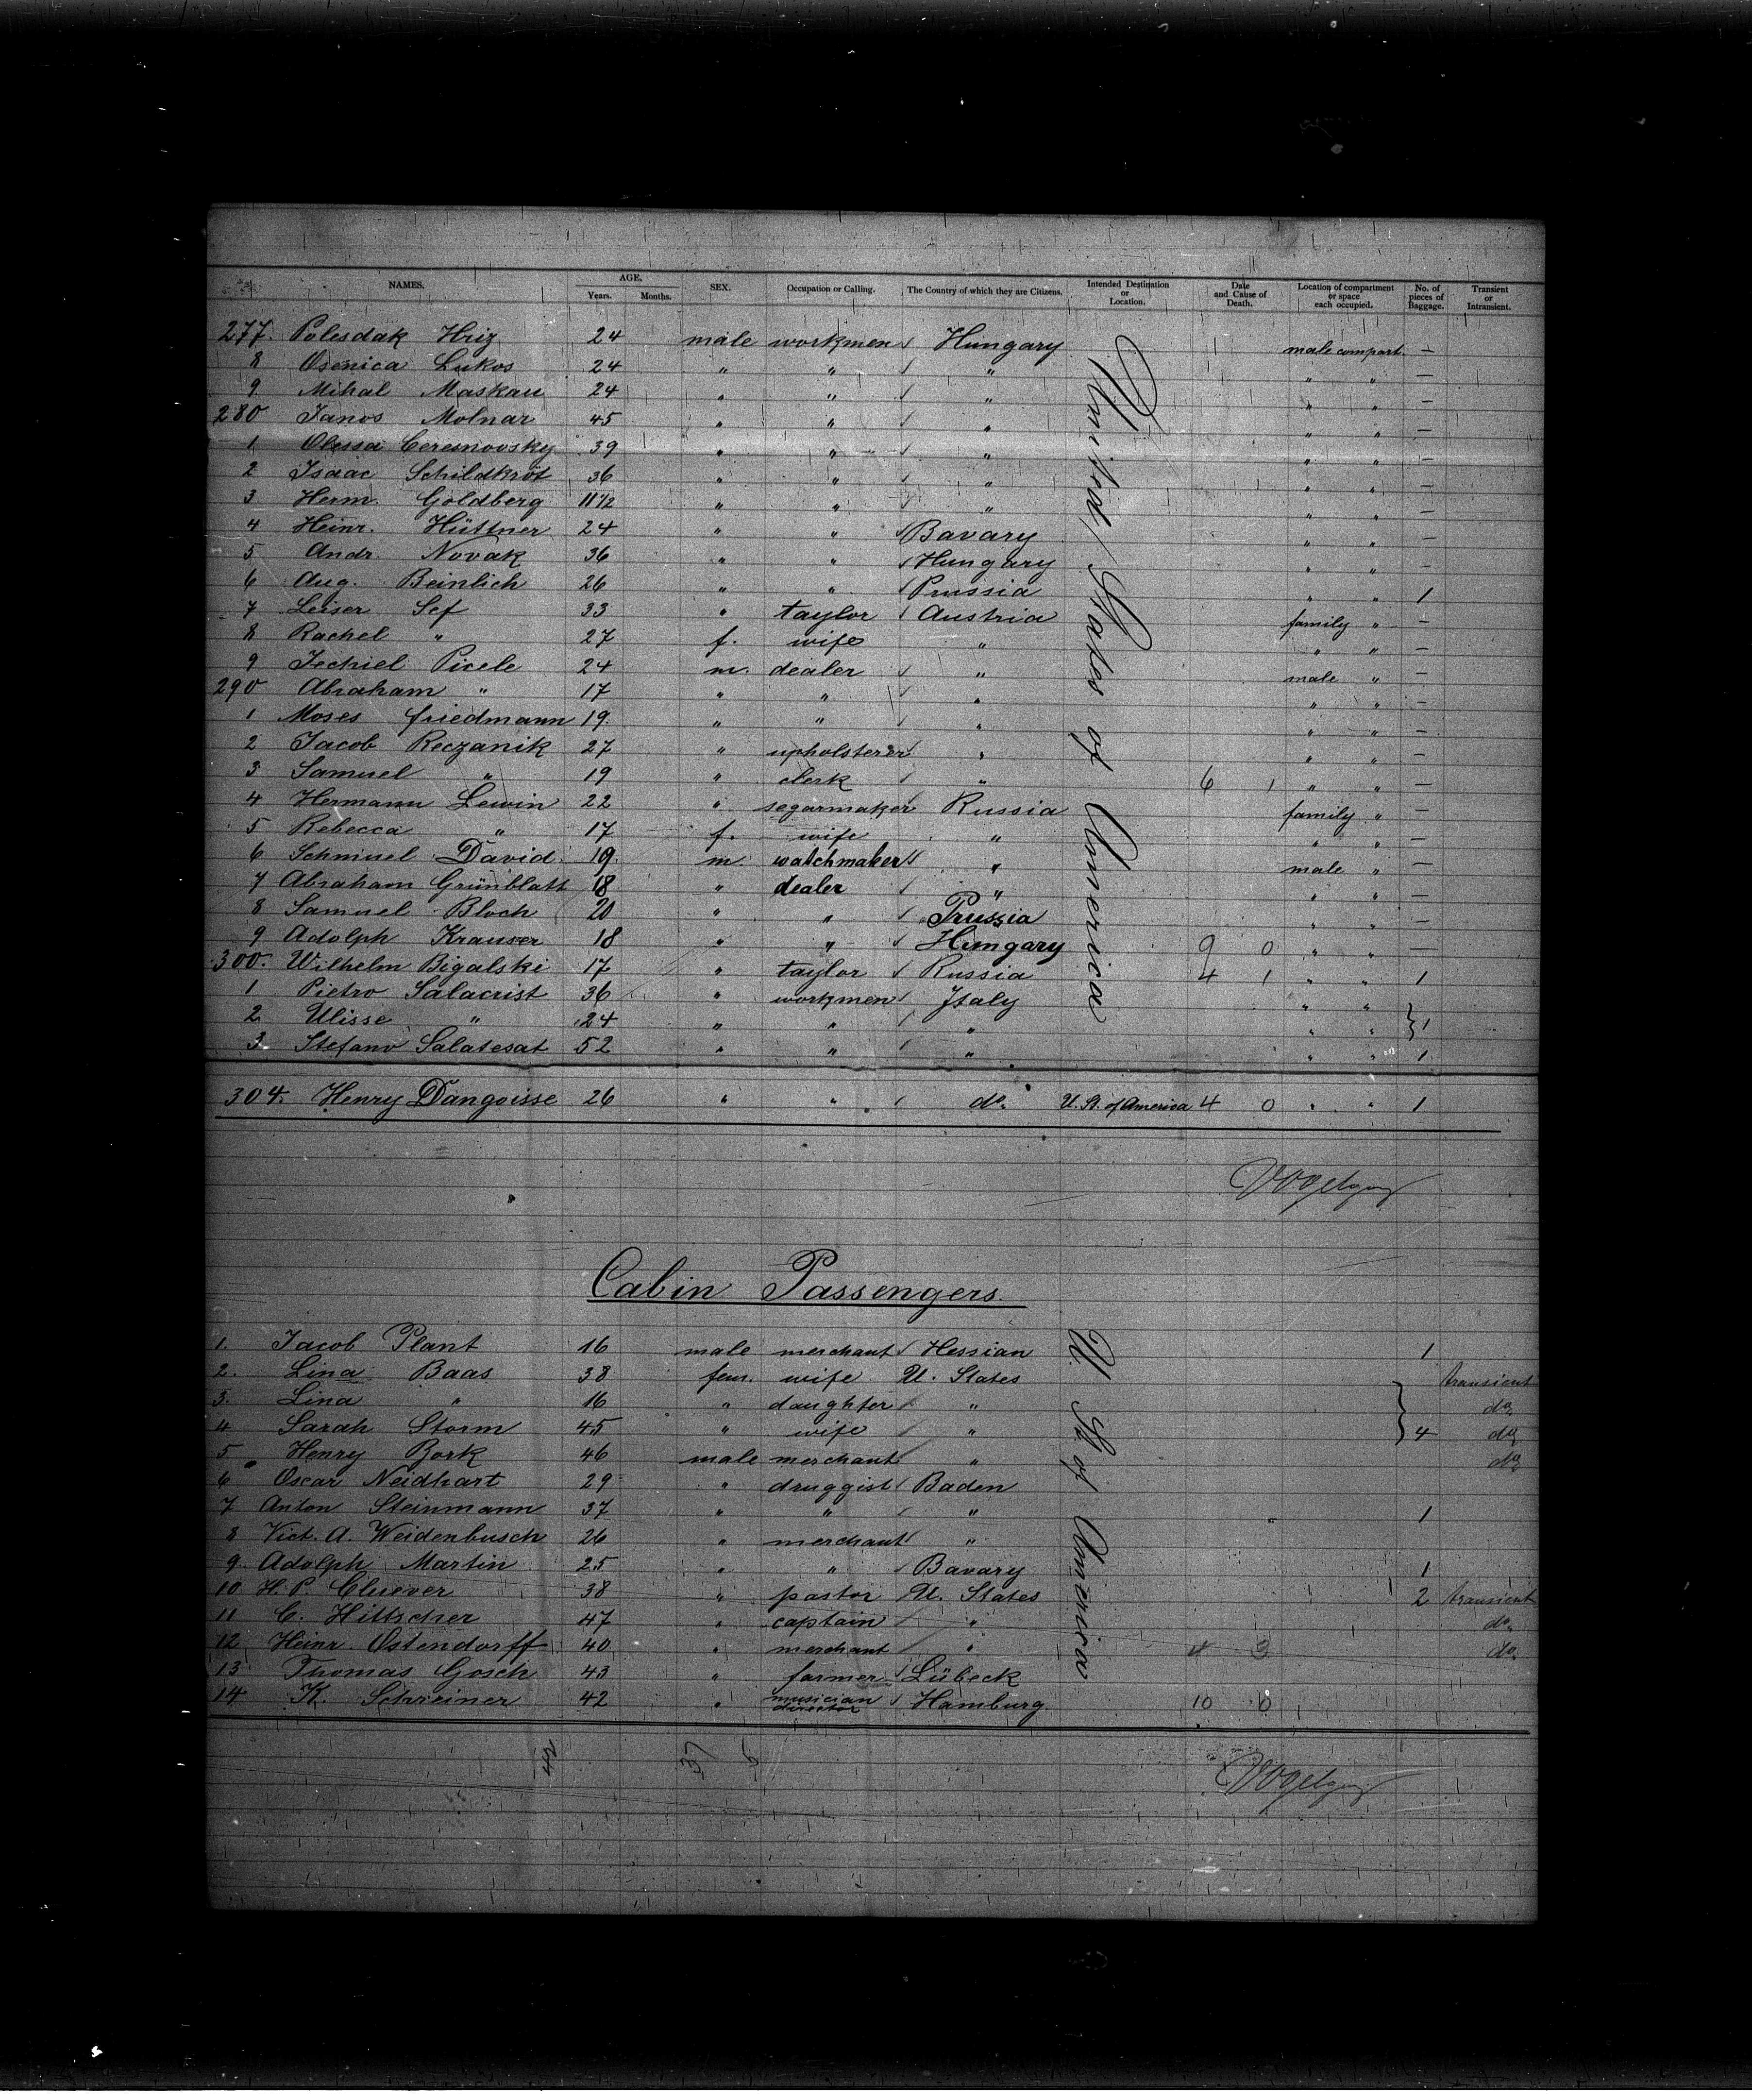 NAMES. AGE. Years. Months. SEX. Occupation or Calling. The Country of which they are Citizens. Intended Destination or Location. Date and Cause of Death. Location of compartment or space each occupied. No. of pieces of Baggage. Transient or Intransient.
277. Polesdak Hriz 24 male workmen Hungary male compart. —
8 Osenica Lukos 24 " " " " " —
9 Mihal Maskau 24 " " " " " —
280 Janos Molnar 45 " " " " " —
1 Olessa Ceremovsky 39 " " " " " —
2 Isaac Schildkröt 36 " " " " " —
3 Herm. Goldberg 11 1/2 " " " " " —
4 Heinr. Hüttner 24 " " Bavary " " —
5 Andr. Novak 36 " " Hungary " " —
6 Aug. Beinlich 26 " " Prussia " " 1
7 Leiser Sef 33 " taylor Austria family " —
8 Rachel " 27 f. wife " " " —
9 Jechiel Picele 24 m. dealer " male " —
290 Abraham " 17 " " " " " —
1 Moses Friedmann 19. " " " " " —
2 Jacob Reczanik 27 " upholsterer " " " —
3 Samuel " 19 " clerk " 6 1 " " —
4 Hermann Lewin 22 " segarmaker Russia family " —
5 Rebecca " 17 f. wife " " " —
6 Schmuel David 19. m. watchmaker " male " —
7 Abraham Grünblatt 18 " dealer " " " —
8 Samuel Bloch 20 " " Prussia " " —
9 Adolph Krauser 18 " " Hungary 9 0 " " —
300. Wilhelm Bigalski 17 " taylor Russia 4 1 " " 1
1 Pietro Salacrist 36 " workmen Italy " "
2 Ulisse " 24 " " " " " } 1
3. Stefano Salatesat 52 " " " " " 1
United States of America
304. Henry Dangoisse 26 " " do. U. St. of America 4 0 " " 1
Cabin Passengers.
1. Jacob Plant 16 male merchant Hessian 1
2. Lina Baas 38 fem. wife U. States transient
3. Lina " 16 " daughter " do.
4 Sarah Storm 45 " wife " } 4 do.
5 Henry Bork 46 male merchant " do.
6 Oscar Neidhart 29 " druggist Baden
7 Anton Steinmann 37 " " " 1
8 Vict. A. Weidenbusch 26 " merchant "
9 Adolph Martin 25 " " Bavary 1
10 H. P. Cluever 38 " pastor U. States 2 transient
11 C. Hittscher 47 " captain " do.
12 Heinr. Ostendorff 40 " merchant " 4 3 do.
13 Thomas Gosch 43 " farmer Lübeck
14 K. Schreiner 42 " musician director Hamburg 10 0
U. St. of America
42 37 5